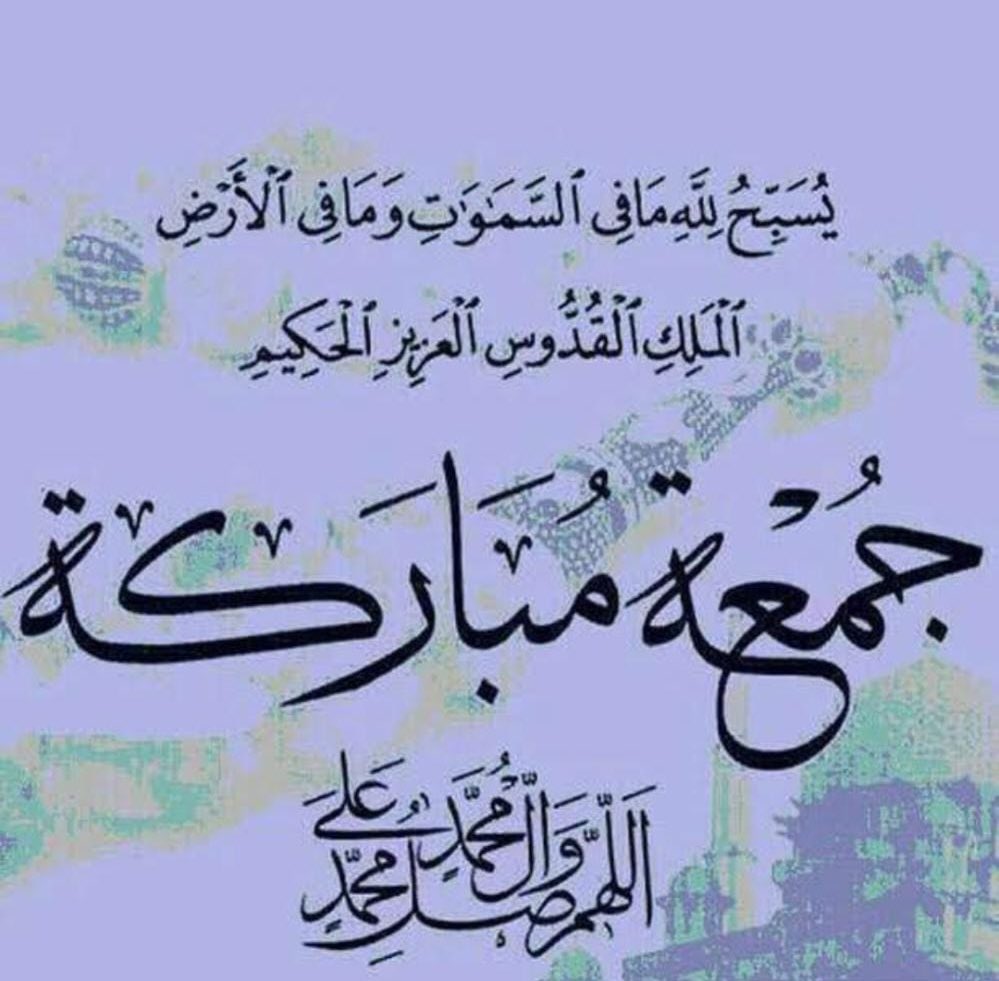 يُسَبِّحُ لِلَّهِ مَا فِي ٱلسَّمَٰوَٰتِ وَمَا فِي ٱلْأَرْضِ
ٱلْمَلِكِ ٱلْقُدُّوسِ ٱلْعَزِيزِ ٱلْحَكِيمِ
جُمْعَة مُبَارَكَة
اللَّهُمَّ صَلِّ عَلَى مُحَمَّدٍ وَآلِ مُحَمَّدٍ